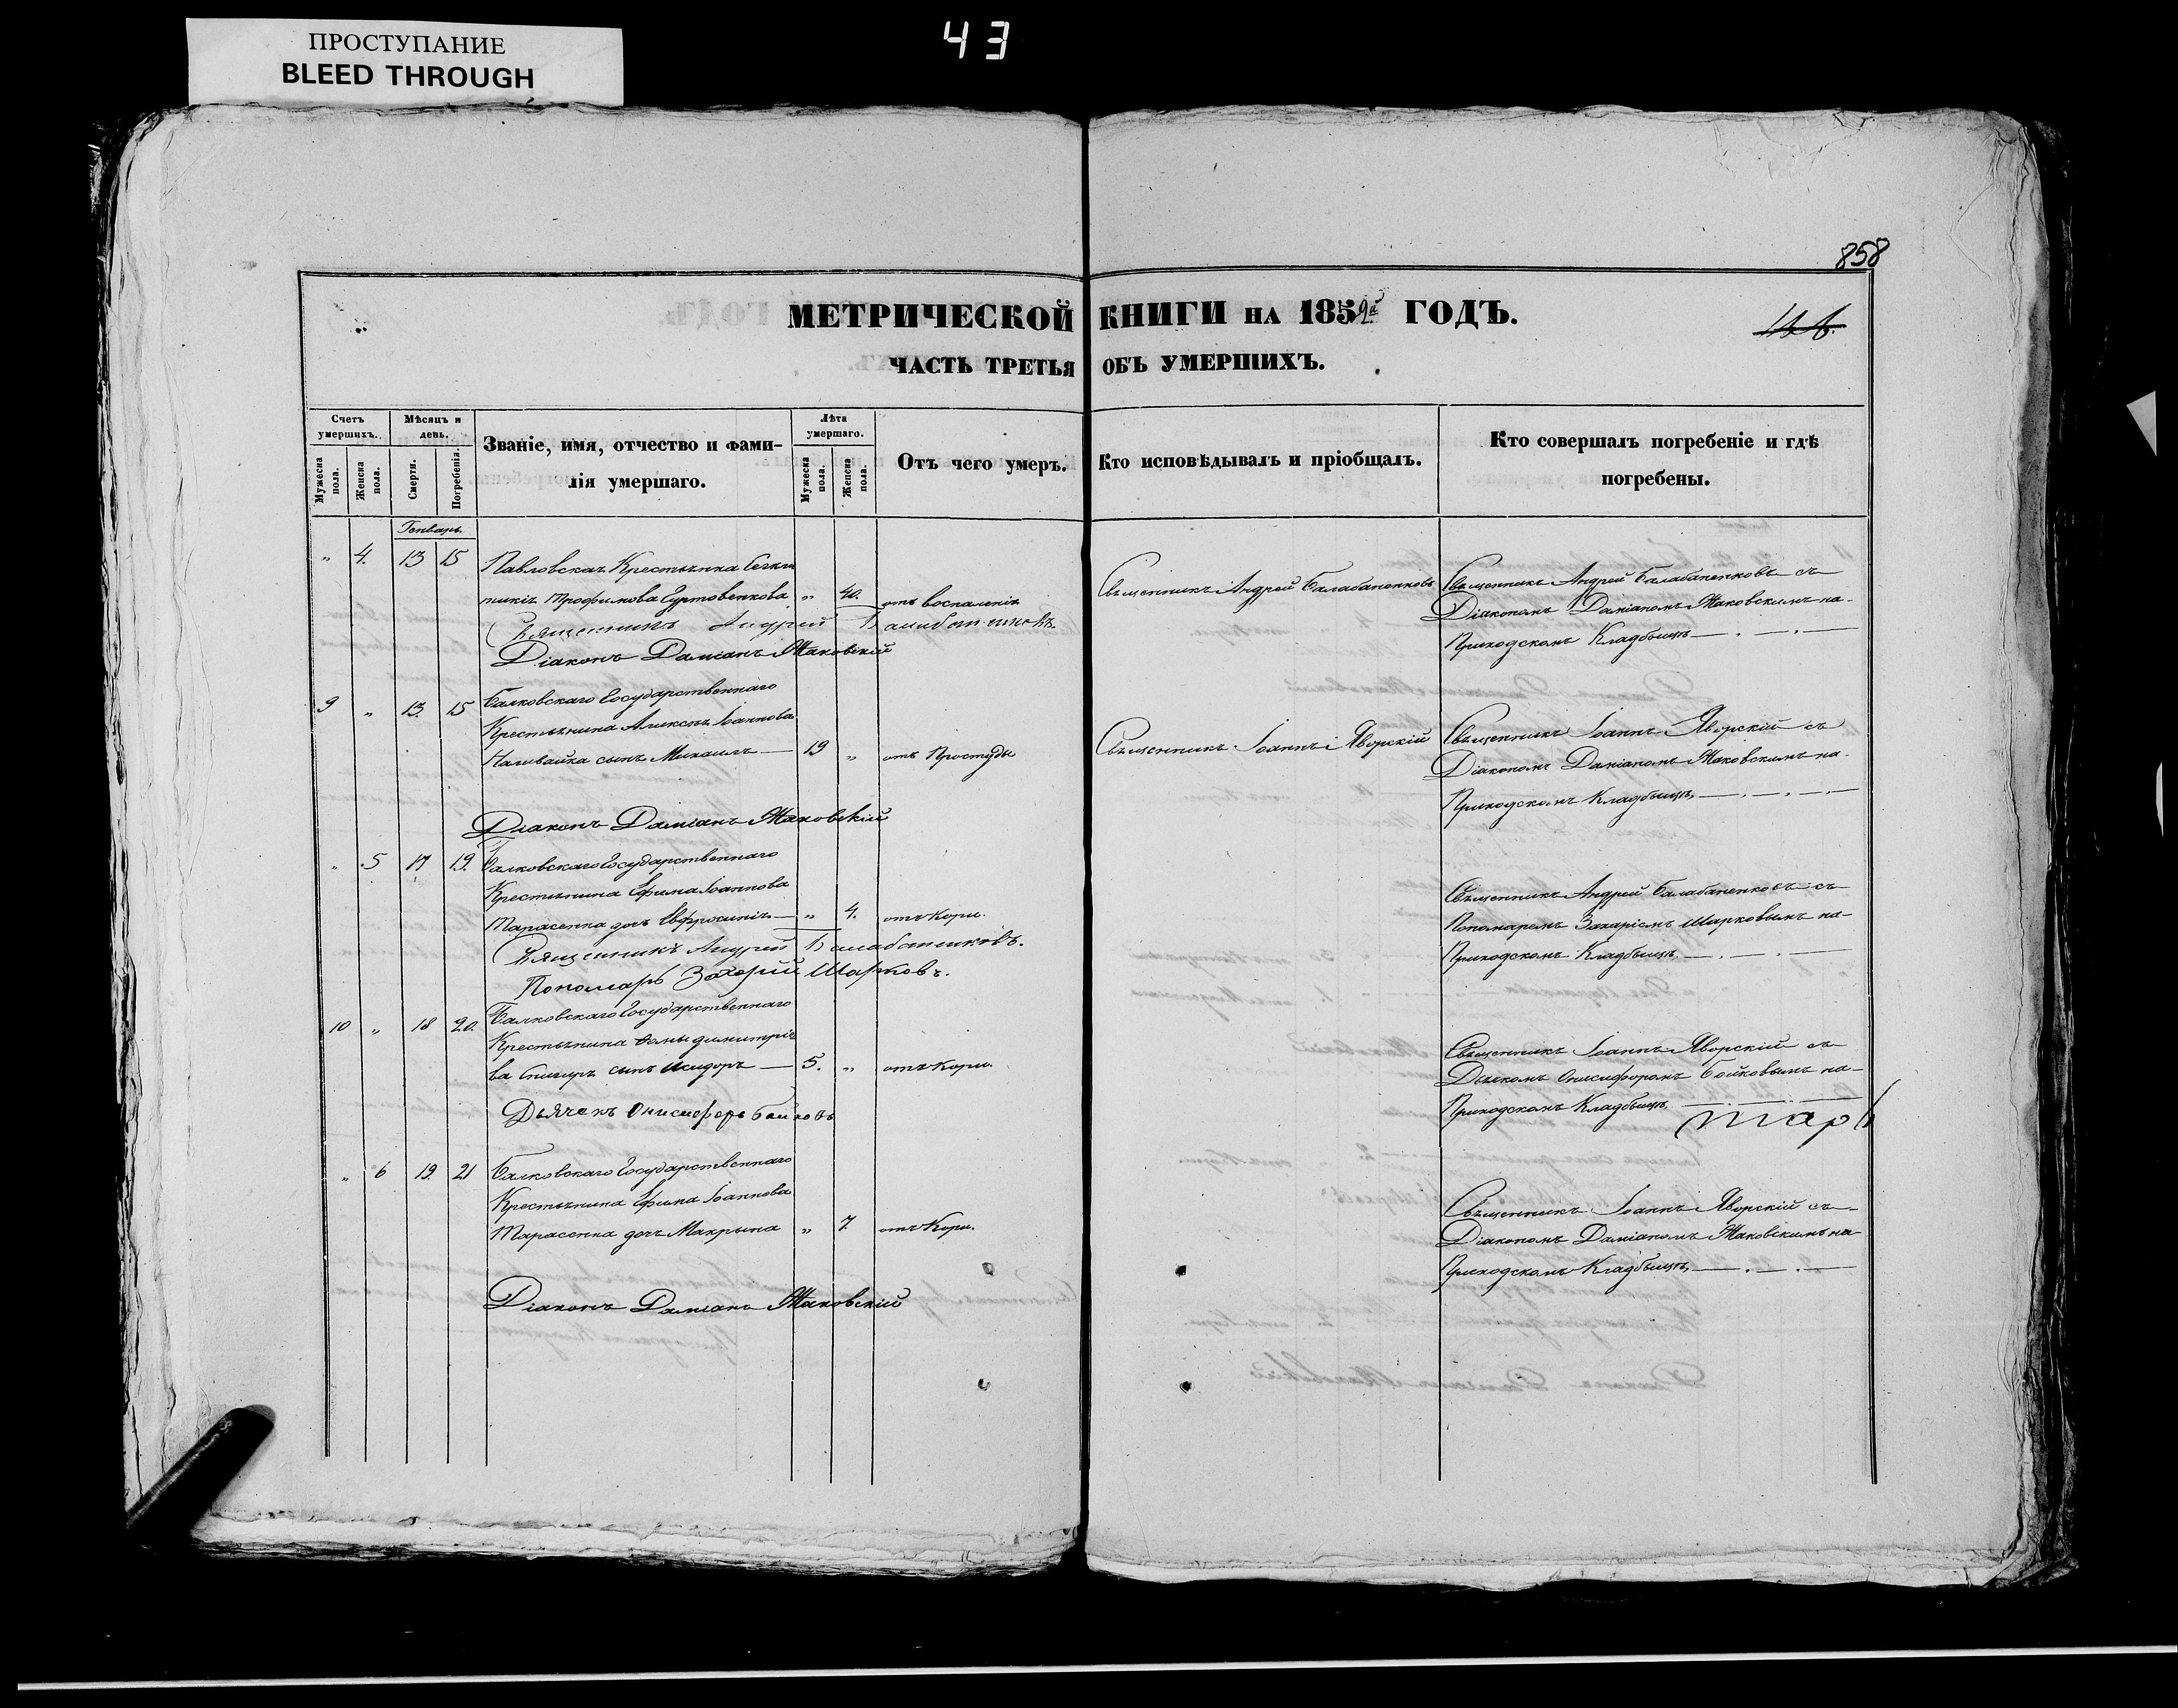 ПРОСТУПАНИЕ
BLEED THROUGH
43
858
МЕТРИЧЕСКОЙ КНИГИ НА 1859й ГОДЪ.
ЧАСТЬ ТРЕТЬЯ ОБЪ УМЕРШИХЪ.
Счетъ умершихъ.
Мужеска пола.
Женска пола.
Мѣсяцъ и день.
Смерти.
Погребенія.
Званіе, имя, отчество и фами-
лія умершаго.
Лѣта умершаго.
Мужеска пола.
Женска пола.
Отъ чего умеръ.
Кто исповѣдывалъ и пріобщалъ.
Кто совершалъ погребеніе и гдѣ
погребены.
Генварь.
" 4. 13 15 Павловская Крестьянка
Трофимова " 40. отъ воспаленія
Священникъ Андрей Балабаненковъ
Діаконъ Даміанъ Маковскій
Священникъ Андрей Балабаненковъ
Священникъ Андрей Балабаненковъ съ
Діакономъ Даміаномъ Маковскимъ на-
Приходскомъ Кладбищѣ
9 " 13. 15 Балковскаго Государственнаго
Крестьянина Алексѣя Іоаннова
Наливайка сынъ Михаилъ 19 " отъ Простуды
Діаконъ Даміанъ Маковскій
Священникъ Іоаннъ Яворскій
Священникъ Іоаннъ Яворскій съ
Діакономъ Даміаномъ Маковскимъ на-
Приходскомъ Кладбищѣ
" 5 17 19. Балковскаго Государственнаго
Крестьянина Ефима Іоаннова
Тарасенка дочь Евфросинія " 4. отъ Кори.
Священникъ Андрей Балабаненковъ.
Пономарь Захарій Шарковъ.
Священникъ Андрей Балабаненковъ съ
Пономаремъ Захаріемъ Шарковымъ на-
Приходскомъ Кладбищѣ
10 " 18 20. Балковскаго Государственнаго
Крестьянина Ѳомы Димитріе
ва сынъ Исидоръ 5. " отъ Кори.
Дьячекъ Онисифоръ Бойковъ
Священникъ Іоаннъ Яворскій съ
Дьякомъ Онисифоромъ Бойковымъ на-
Приходскомъ Кладбищѣ
" 6 19. 21 Балковскаго Государственнаго
Крестьянина Ефима Іоаннова
Тарасенка дочь Макрына " 7. отъ Кори.
Діаконъ Даміанъ Маковскій
Священникъ Іоаннъ Яворскій съ
Діакономъ Даміаномъ Маковскимъ на
Приходскомъ Кладбищѣ